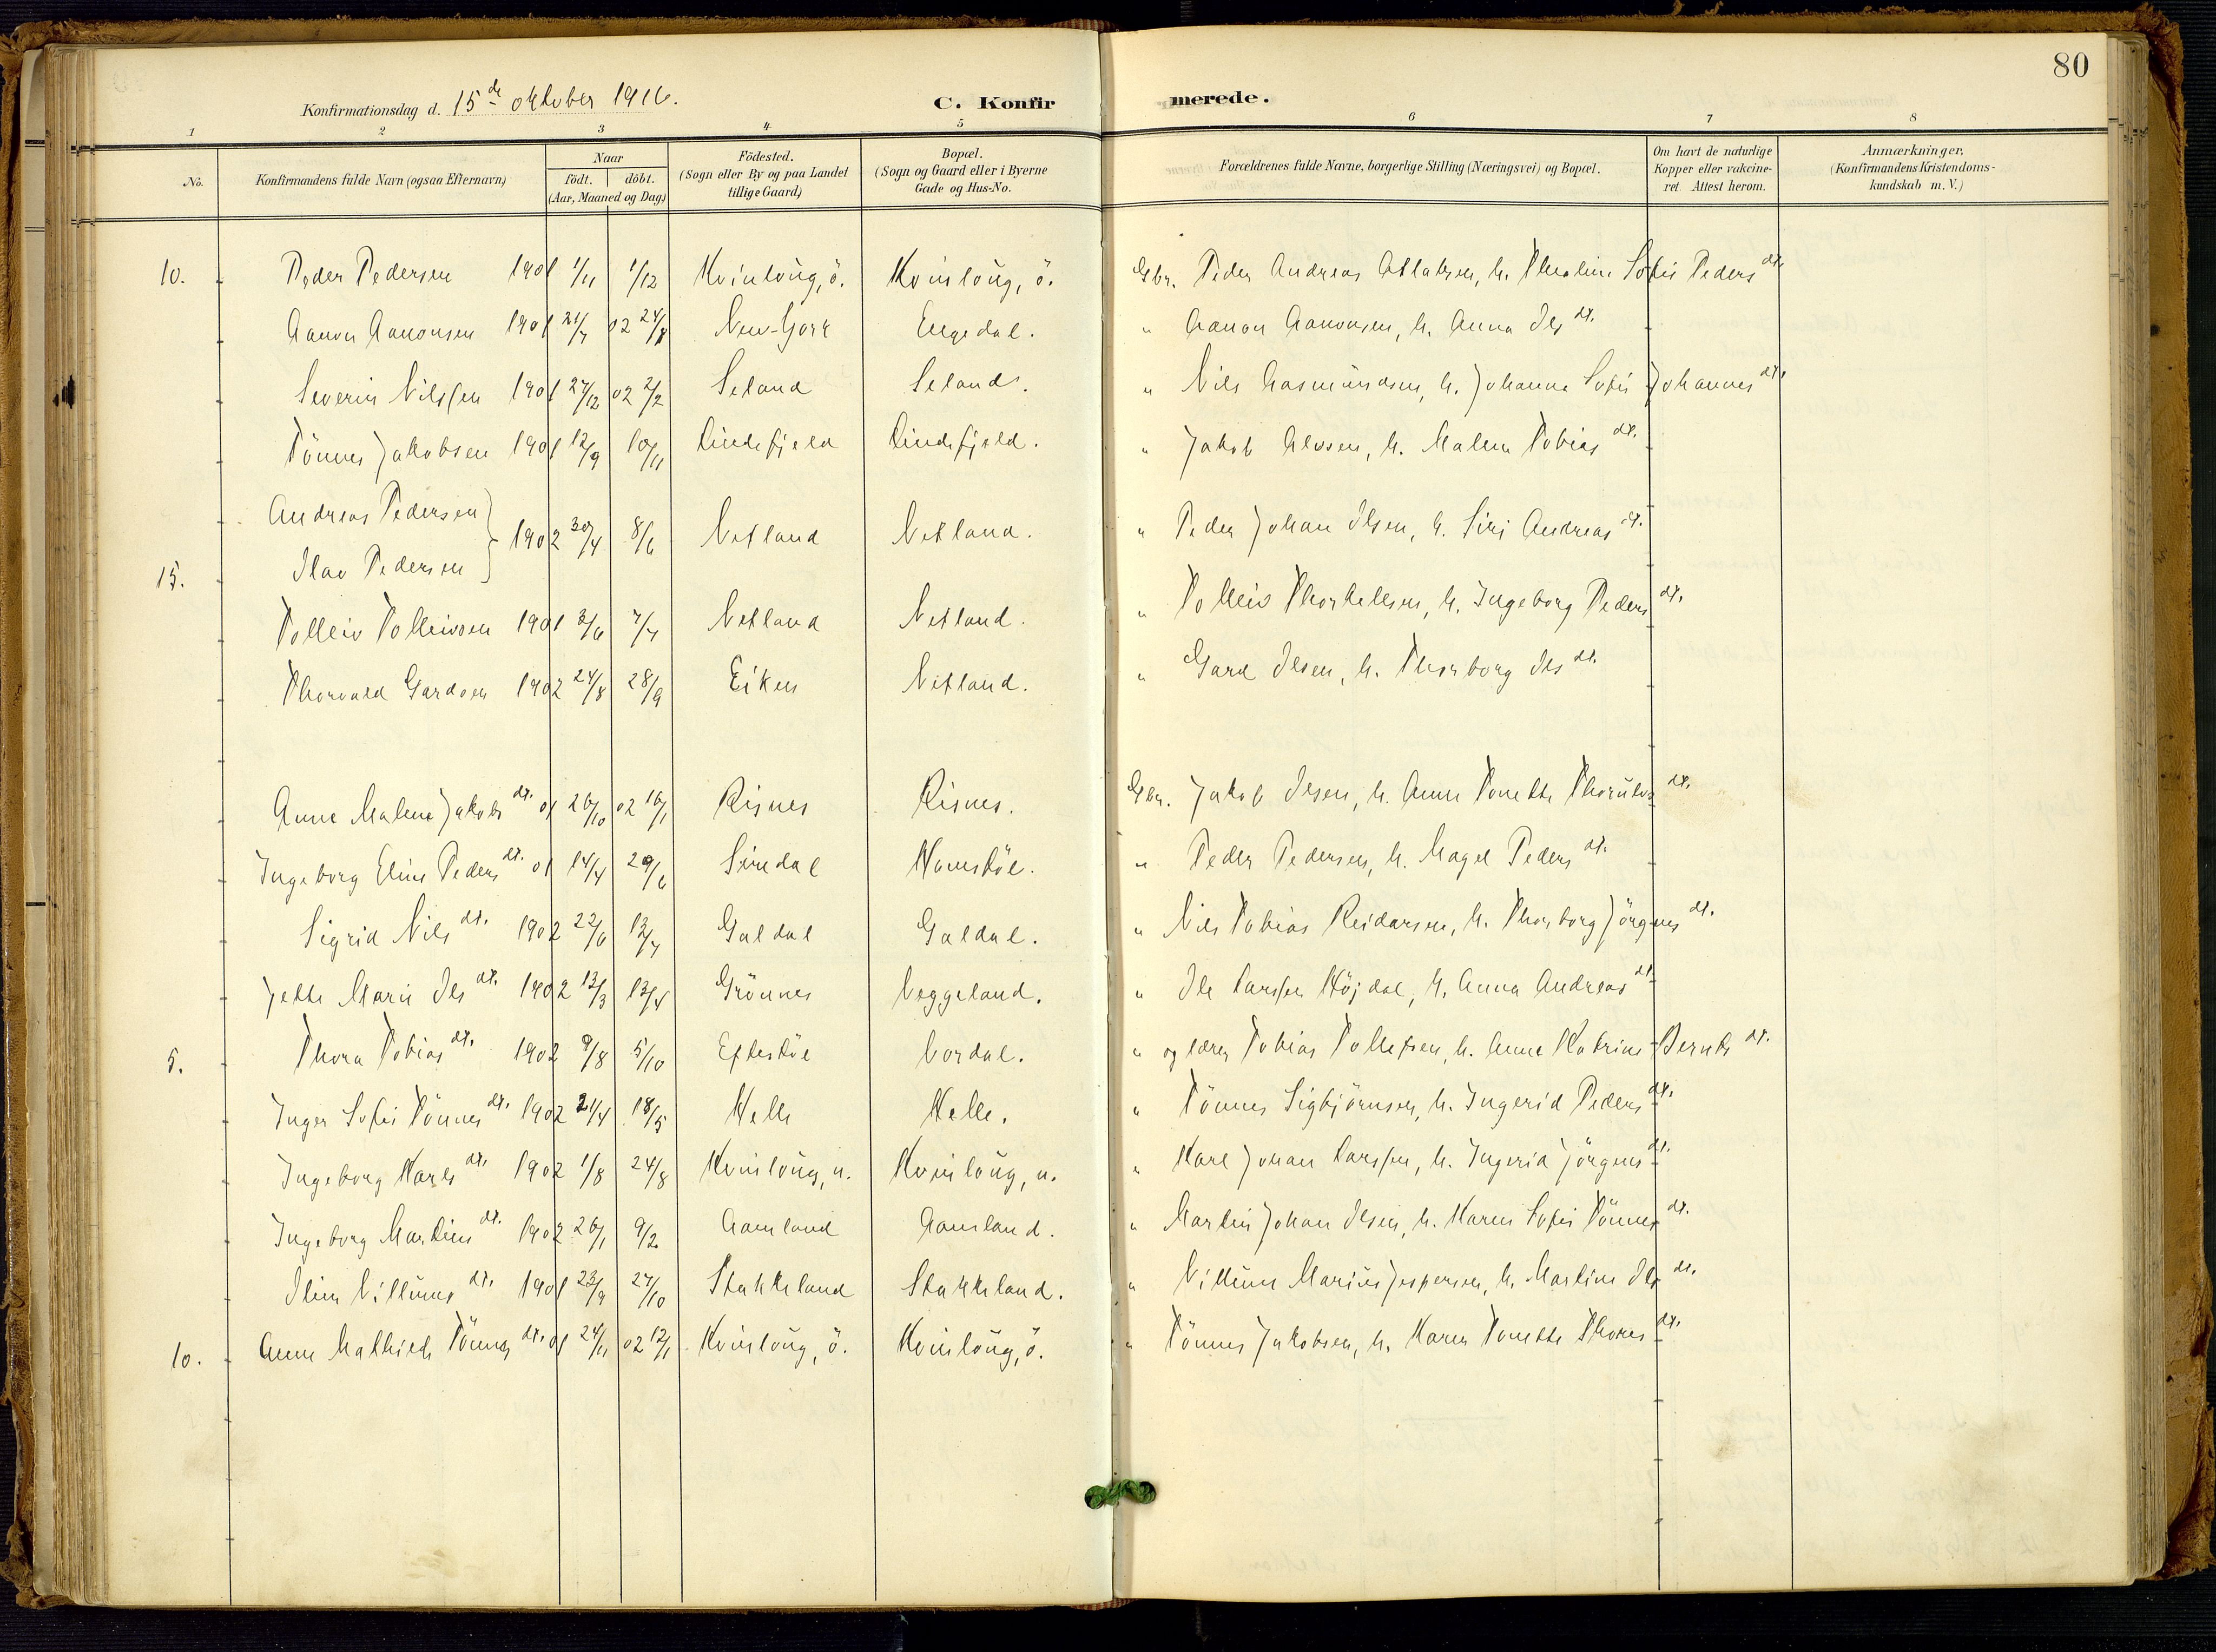 80
Konfirmationsdag d. 15de oktober 1916.
C. Konfirmerede.
1 2 3 4 5 6 7 8
No.
Konfirmandens fulde Navn (ogsaa Efternavn)
Naar
födt. döbt.
(Aar, Maaned og Dag)
Födested.
(Sogn eller By og paa Landet
tillige Gaard)
Bopæl.
(Sogn og Gaard eller i Byerne
Gade og Hus-No.
Forældrenes fulde Navne, borgerlige Stilling (Næringsvei) og Bopæl.
Om havt de naturlige
Kopper eller vakcine-
ret. Attest herom.
Anmærkninger.
(Konfirmandens Kristendoms-
kundskab m. V.)
10. Peder Pedersen 1901 1/11 1/12 Kvinloug, ö. Kvinloug, ö. Gbr. Peder Andreas h. Sofie Peders dt.
Aanon Aanonsen 1901 21/7 02 24/8 New-York Engedal. " Aanon Aanonsen, h. Anna Ils dt.
Severin Nilssen 1901 27/12 02 2/2 Seland Seland. " Nils Aasmundsen, h. Johanne Sofie Johannes dt.
Tönnes Jakobsen 1901 12/9 10/11 Lindefjeld Lindefjeld. " Jakob h. Malene Tobias dt.
Andreas Pedersen
1902 30/4 8/6 Netland Netland. " Peder Johan Ilsen, h. Siri Andreas dt.
15. Olav Pedersen
Tolleiv Tolleivsen 1901 2/6 7/7 Netland Netland. " Tolleiv Thorkelsen, h. Ingeborg Peders dt.
Thorvald Gardsen 1902 24/8 28/9 Eiken Netland. " Gard Ilsen, h. Thorborg Ils dt.
Anne Malene Jakobs dt. 01 26/10 02 16/1 Risnes Risnes. Gbr. Jakob Ilsen, h. Anne Tonette dt.
Ingeborg Eline Peders dt. 01 14/4 29/6 Sirdal Homstöl. " Peder Pedersen, h. Magel Peders dt.
Sigrid Nils dt. 1902 22/6 13/7 Galdal Galdal. " Nils Tobias Reidarsen, h. Thorborg Jörgens dt.
Jette Marie Ils dt. 1902 12/3 13/4 Grönnes Veggeland. " Ile Larssen Höjdal, h. Anna Andreas dt.
5. Thora Tobias dt. 1902 9/8 5/10 Eftestöl Vordal. " og lærer Tobias Tollefsen, h. Anne Katrine Bernts dt.
Inger Sofie Tönnes dt. 1902 21/4 18/5 Helle Helle. " Tönnes Sigbjörnsen, h. Ingerid Peders dt.
Ingeborg Karls dt. 1902 1/8 24/8 Kvinloug, n. Kvinloug, n. " Karl Johan Larssen, h. Ingerid Jörgens dt.
Ingeborg Martins dt. 1902 26/1 9/2 Aamland Aamland. " Martin Johan Ilsen, h. Karen Sofie Tönnes dt.
Villums dt. 1901 23/9 27/10 Stakkeland Stakkeland. " Villum Marius Jespersen, h. Martine Ils dt.
10. Anne Mathilde Tönnes dt. 01 24/11 02 12/1 Kvinloug, ö. Kvinloug, ö. " Tönnes Jakobsen, h. Karen Tonette Thores dt.